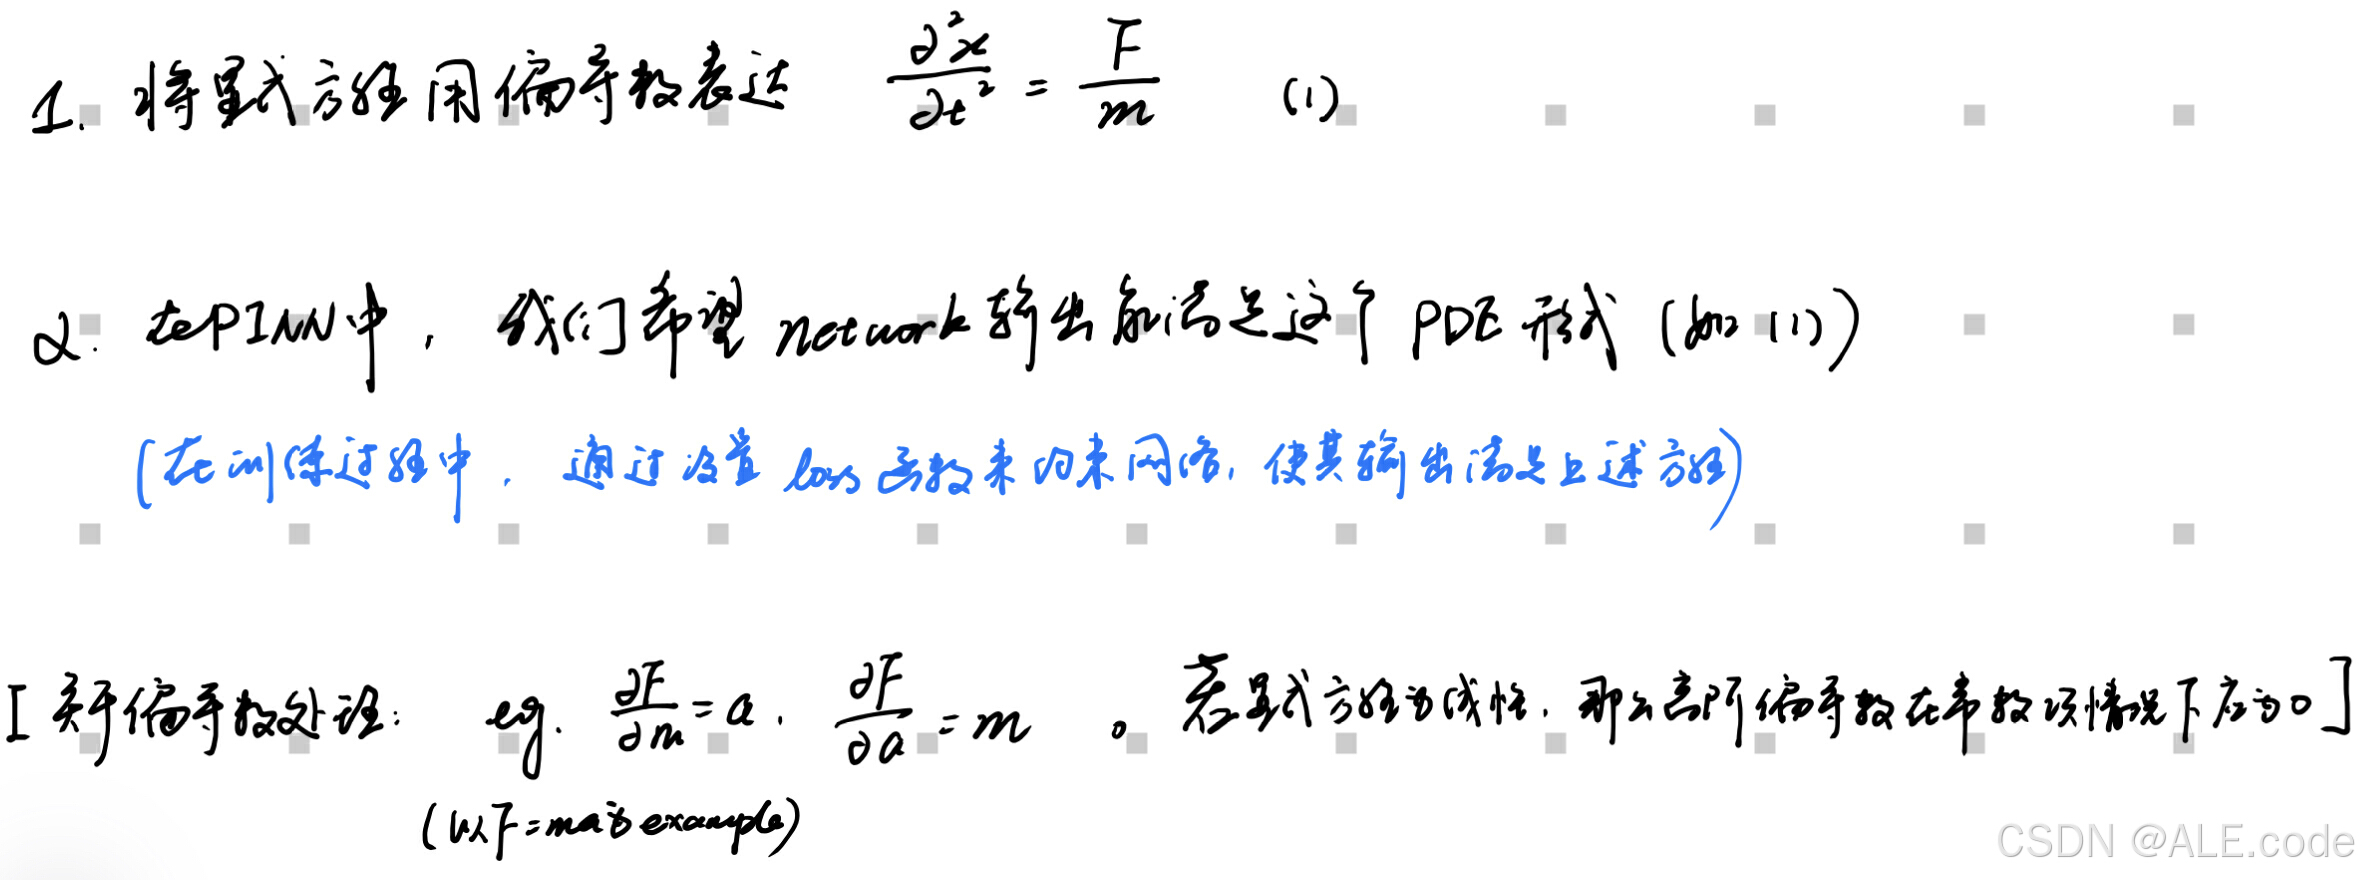 1. 将显式方程用偏导数表达 ∂²x/∂t² = F/m (1)
2. 在PINN中, 我们希望 network 输出能满足这个 PDE 形式 (如 (1))
(在训练过程中, 通过设置 loss 函数来约束网络, 使其输出满足上述方程)
[关于偏导数处理: eg. ∂F/∂m = a, ∂F/∂a = m 。若显式方程为线性, 那么高阶偏导数在常数项情况下应为0]
(以F=ma为example)
CSDN @ALE.code